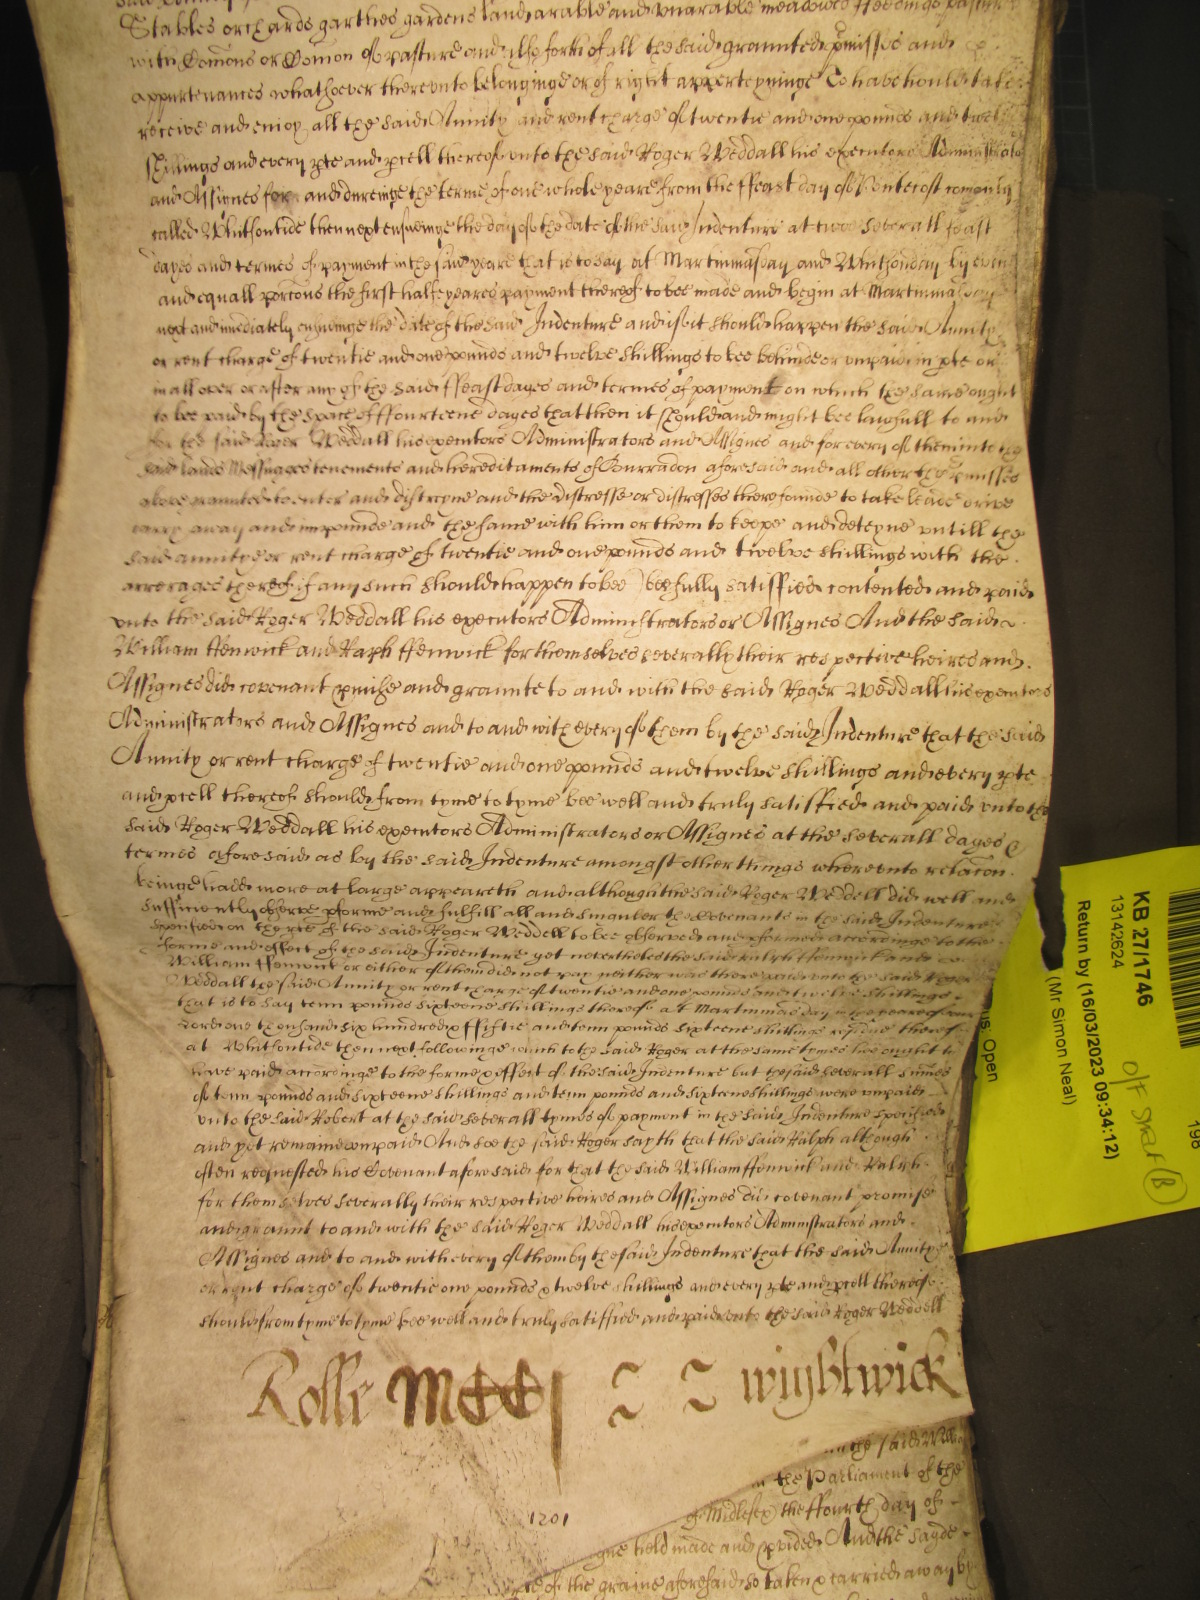 Stables orchards garthes gardens land arable and unarable meadowes ffeedings pasture
with Comons or Comon of pasture and all the said grannted pmisses and
appurtenances whatsoever thereunto belonginge or of right apperteyninge To have hould take
receive and enioy all the said Annity and rent charge of twentie and one pounds and twelve
shillings and every pte and pcell thereof unto the said Roger Weddall his executors Administrators
and Assignes for and dureinge the terme of one whole yeare from the ffeast day of Pentecost comonly
called Whitsontide then next ensueinge the day of the date of the said Indenture at twoe severall feast
dayes and termes of payment in the said yeare that is to say at Martinmas day and Whitsonday by even
and equall porcons the first halfe yeares payment thereof to bee made and begin at Martinmas day
next and imediately ensueinge the date of the said Indenture and if it should happen the said Annity
or rent charge of twentie and one pounds and twelve shillings to bee behinde or unpaid in pte or
in all over or after any of the said ffeast dayes and termes of payment on which the same ought
to bee paid by the space of ffourteene dayes that then it should and might bee lawfull to and
for the said Roger Weddall his executors Administrators and Assignes and for every of them into the
said lands Messuages tenements and hereditaments of aforesaid and all other the pmisses
above grannted to enter and distreyne and the distresse or distresses there founde to take leade drive
carry away and impounde and the same with him or them to keepe and deteyne untill the
said annitye or rent charge of twentie and one pounds and twelve shillings with the
arrerages thereof if any such should happen to bee) bee fully satisfied contented and paid
unto the said Roger Weddall his executors Administrators or Assignes And the said
William ffenwick and Raph ffenwick for themselves severally their respective heires and
Assignes did covenant pmise and grannte to and with the said Roger Weddall his executors
Administrators and Assignes and to and with every of them by the said Indenture that the said
Annity or rent charge of twentie and one pounds and twelve shillings and every pte
and pcell thereof should from tyme to tyme bee well and truly satisfied and paid unto the
said Roger Weddall his executors Administrators or Assignes at the severall dayes &
termes aforesaid as by the said Indenture amongst other things whereunto relacon
beinge hadd more at large appeareth and although the said Roger Weddell did well and
sufficiently observe pforme and fulfill all and singuler the Covenants in the said Indenture
specified on the pte of the said Roger Weddell to bee observed and pformed accordinge to the
forme and effect of the said Indenture yet neverthelesse the said Ralph ffenwick and
William ffenwick or either of them did not pay neither was there paid unto the said Roger
Weddall the said Annity or rent charge of twentie and one pounds and twelve shillings
that is to say tenn pounds sixteene shillings thereof at Martinmas day in the yeare of our
Lord one thousand six hundred & ffiftie and tenn pounds sixteene shillings residue thereof
at Whitsontide then next followinge which to the said Roger at the same tymes hee ought to
have paid accordinge to the forme & effect of the said Indenture but the said severall summes
of tenn pounds and sixteene shillings and tenn pounds and sixteene shillings were unpaid
unto the said Robert at the said severall tymes of payment in the said Indenture specified
and yet remaine unpaid And soe the said Roger sayth that the said Ralph although
often requested his Covenant aforesaid for that the said William ffenwick and Ralph
for themselves severally their respective heires and Assignes did covenant promise
and grannt to and with the said Roger Weddall his executors Administrators and
Assignes and to and with every of them by the said Indenture that the said Annitye
or rent charge of twentie one pounds & twelve shillings and every pte and pcell thereof
should from tyme to tyme bee well and truly satisfied and paid unto the said Roger Weddell
Rolle MCCJ ~ ~ wightwick
1201
the said
in the Parliament of the
Midlesex the ffourth day of
held made and pvided And the sayde
of the graine aforesaid so taken & carried away by
KB 27/1746
13142624
Return by (16/03/2023 09:34:12)
(Mr Simon Neal)
us: Open
198
O/F
(B)